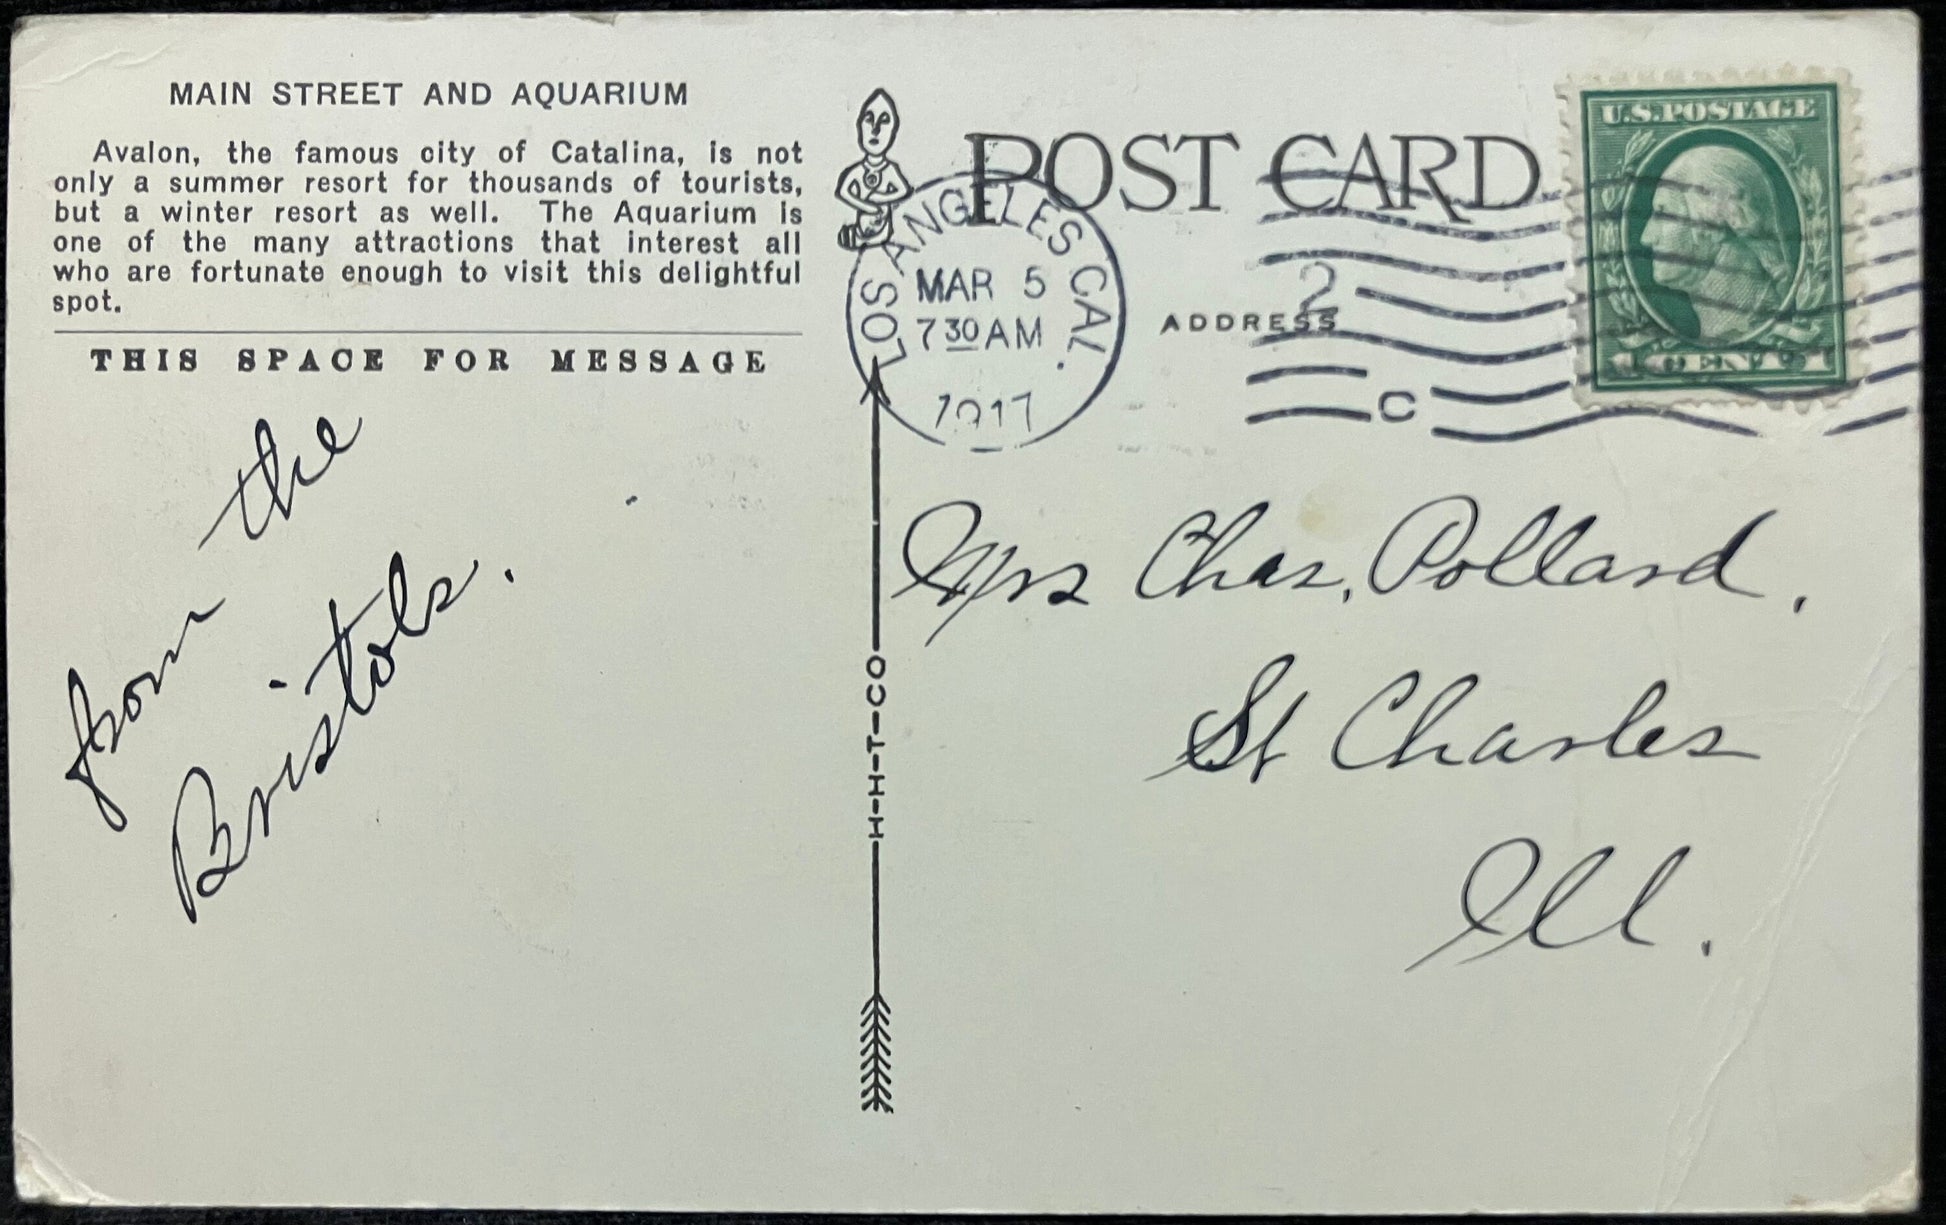 MAIN STREET AND AQUARIUM
Avalon, the famous city of Catalina, is not
only a summer resort for thousands of tourists,
but a winter resort as well. The Aquarium is
one of the many attractions that interest all
who are fortunate enough to visit this delightful
spot.
THIS SPACE FOR MESSAGE
from the
Bristols.
H-H-T-CO
POST CARD
ADDRESS
LOS ANGELES CAL.
MAR 5
7 30 AM
1917
2
C
U.S.POSTAGE
1 CENT 1
Mrs Chas, Pollard,
St Charles
Ill.